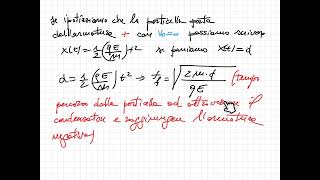 se ipotizziamo che la particella parta
dall'armatura + con V₀=0 possiamo scrivere
x(t) = 1/2 (qE/m) t² se poniamo x(t) = d
d = 1/2 (qE/m) t² → t = √(2 m · d / qE) (tempo
percorso dalla particella ad attraversare il
condensatore e raggiungere l'armatura
negativa)